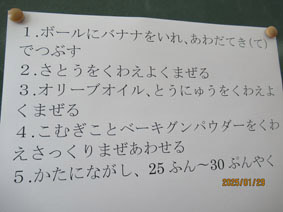 １.ボールにバナナをいれ、あわだてき(て)
でつぶす
２.さとうをくわえよくまぜる
３.オリーブオイル、とうにゅうをくわえよ
くまぜる
４.こむぎことベーキグンパウダーをくわ
えさっくりまぜあわせる
５.かたにながし、25ふん～30ぷんやく
2025/01/23